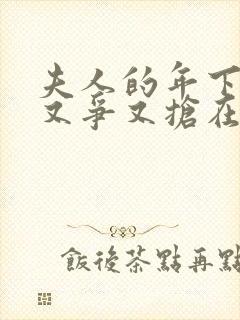 夫人的年下
又爭又搶在
飯後茶點再點